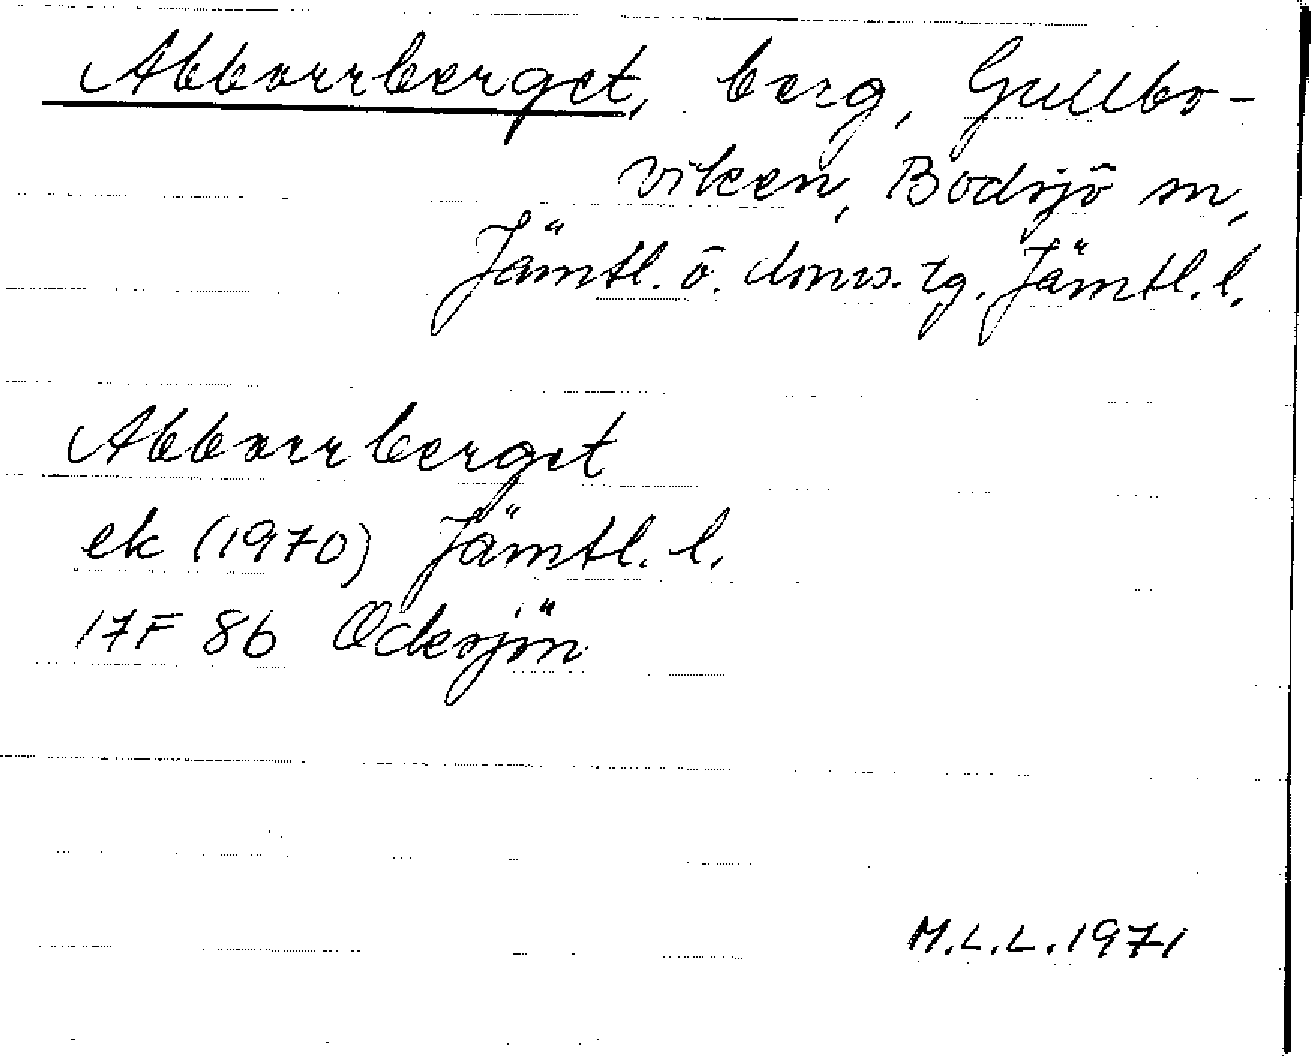 Abborrberget, berg, Gullbo-
viken, Bodsjö sn,
Jämtl. ö. doms. tg. Jämtl. l.
Abborrberget
ek (1970) Jämtl. l.
17F 8b Ockesjön
M.L.L. 1971